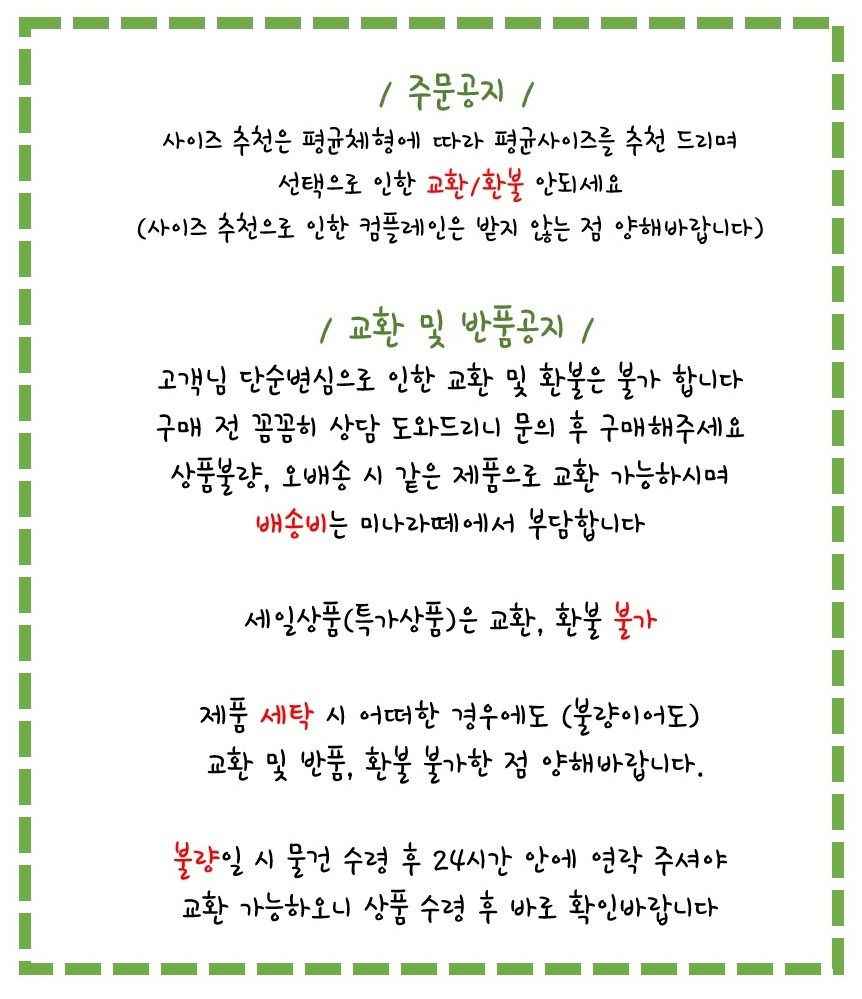 / 주문공지 /
사이즈 추천은 평균체형에 따라 평균사이즈를 추천 드리며
선택으로 인한 교환/환불 안되세요
(사이즈 추천으로 인한 컴플레인은 받지 않는 점 양해바랍니다)
/ 교환 및 반품공지 /
고객님 단순변심으로 인한 교환 및 환불은 불가 합니다
구매 전 꼼꼼히 상담 도와드리니 문의 후 구매해주세요
상품불량, 오배송 시 같은 제품으로 교환 가능하시며
배송비는 미나라떼에서 부담합니다
세일상품(특가상품)은 교환, 환불 불가
제품 세탁 시 어떠한 경우에도 (불량이어도)
교환 및 반품, 환불 불가한 점 양해바랍니다.
불량일 시 물건 수령 후 24시간 안에 연락 주셔야
교환 가능하오니 상품 수령 후 바로 확인바랍니다